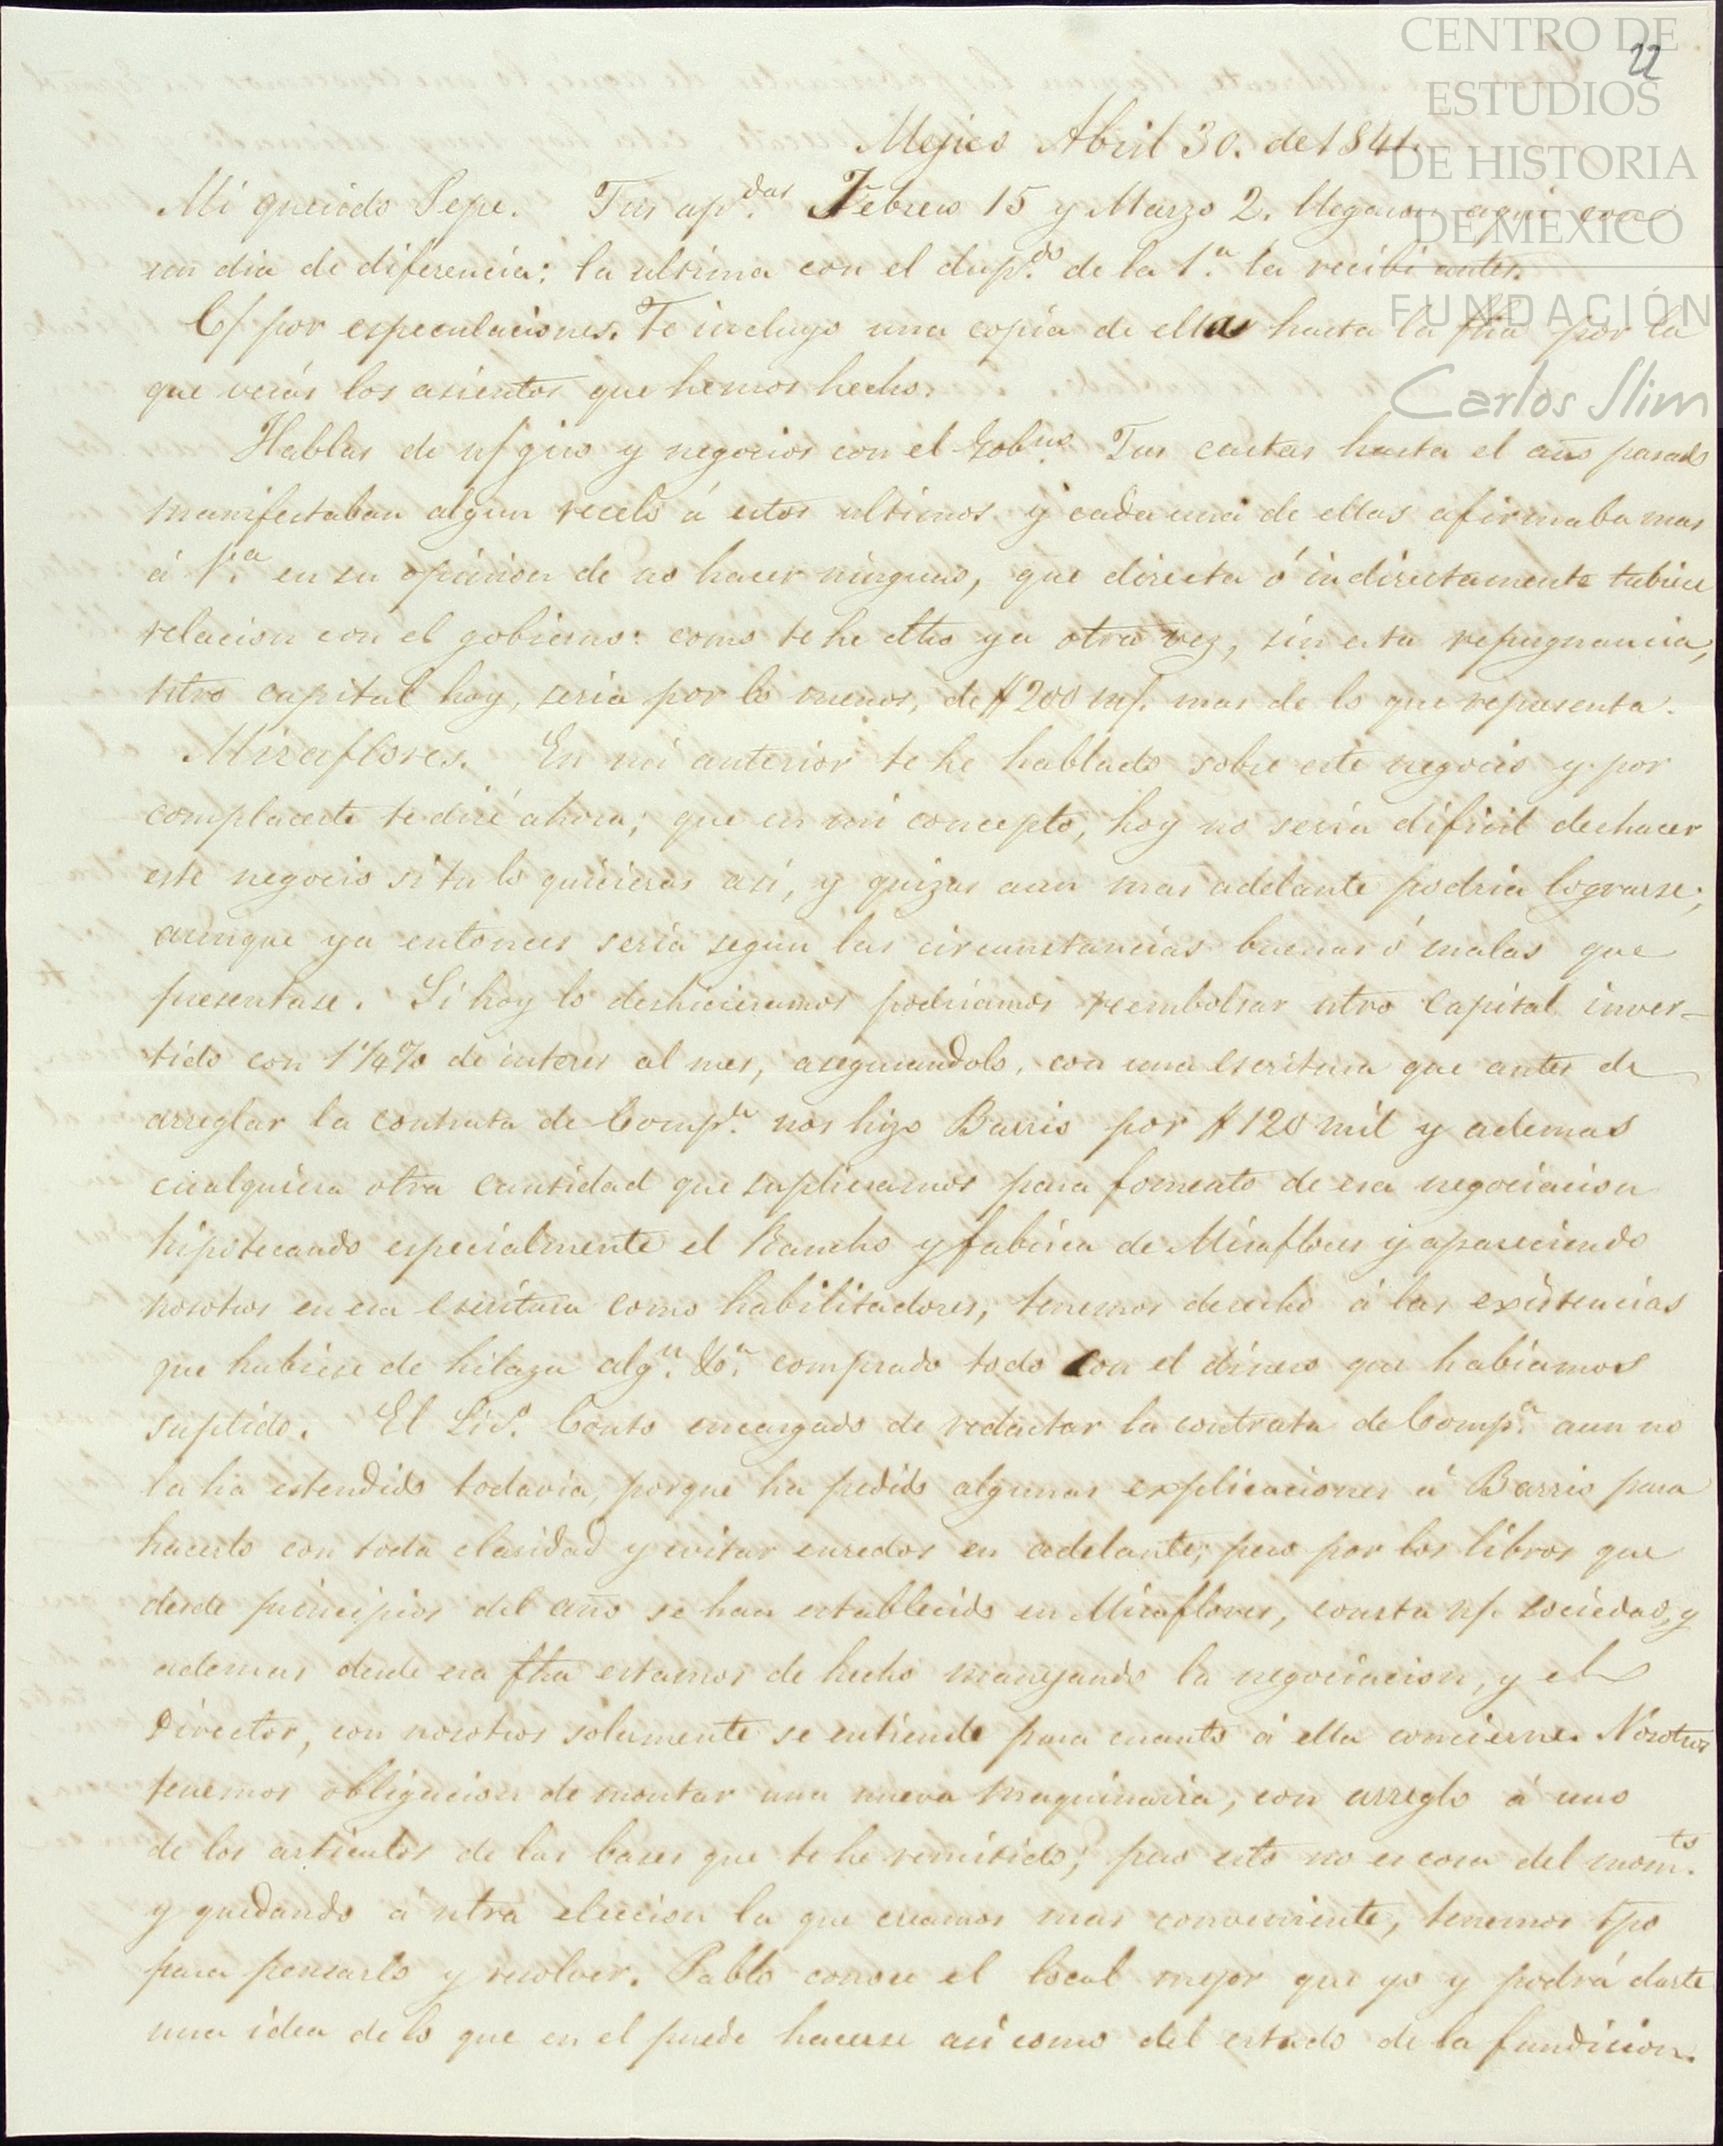 CENTRO DE
ESTUDIOS
DE HISTORIA
DE MÉXICO
FUNDACIÓN
Carlos Slim
22
Mejico Abril 30. de 1841.
Mi querido Pepe. Tus ap.das Febrero 15 y Marzo 2. llegaron aqui con
un dia de diferencia: la ultima con el dup.do de la 1.a la recibi antes.
C/ por especulaciones. Te incluyo una copia de ellas hasta la fha por la
que verás los asientos que hemos hecho.
Hablas de n/ giro y negocios con el Gob.no Tus cartas hasta el año pasado
manifestaban algun recelo á estos ultimos y cada una de ellas afirmaba mas
á P.a en su opinion de no hacer ninguno, que directa ó indirectamente tubiese
relacion con el gobierno: como te he dho ya otra vez, sin esta repugnancia,
ntro capital hoy, seria por lo menos, de $200 m/. mas de lo que representa.
Miraflores. En mi anterior te he hablado sobre este negocio y por
complacerte te diré ahora; que en mi concepto, hoy no sería dificil deshacer
este negocio si tu lo quisieras asi, y quizas aun mas adelante podria lograrse;
aunque ya entonces sería segun las circunstancias buenas ó malas que
presentase. Si hoy lo deshicieramos podriamos reembolsar ntro capital inver-
tido con 1 1/4 % de interes al mes, asegurandolo, con una escritura que antes de
arreglar la contrata de Comp.a nos hizo Barrio por $120 mil y ademas
cualquiera otra cantidad que supliesemos para fomento de esa negociacion
hipotecando especialmente el Rancho y fabrica de Miraflores y apareciendo
nosotros en esa escritura como habilitadores, tenemos derecho á las existencias
que hubiese de hilaza alg.n &.a comprado todo con el dinero que habiamos
suplido. El Lic.o Couto encargado de redactar la contrata de Comp.a aun no
la ha estendido todavia, porque ha pedido algunas explicaciones á Barrio para
hacerlo con toda claridad y evitar enredos en adelante; pero por los libros que
desde principios del año se han establecido en Miraflores, consta n/. sociedad, y
ademas desde esa fha estamos de hecho manejando la negociacion, y el
Director, con nosotros solamente se entiende para cuanto á ella concierne. Nosotros
tenemos obligacion de montar una nueva maquinaria, con arreglo á uno
de los articulos de las bases que te he remitido; pero esto no es cosa del mom.to
y quedando á ntra eleccion la que creamos mas conveniente, tenemos tpo
para pensarlo y resolver. Pablo conoce el local mejor que yo y podrá darte
una idea de lo que en el puede hacerse asi como del estado de la fundicion.